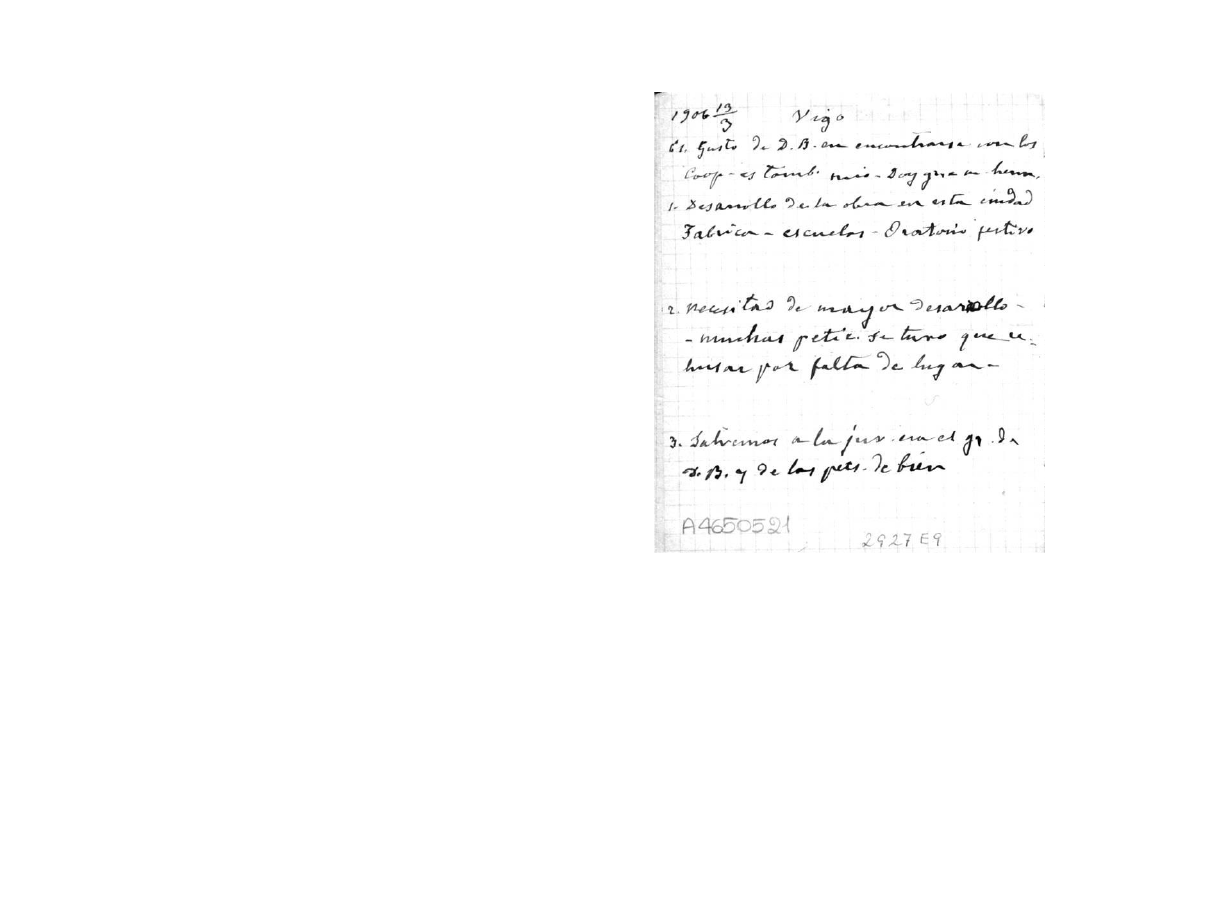 1906 13/3 Vigo
Es. Gusto de D. B. en encontrarse con los
Coop - es tamb. mio - Doy gra a herm.
1. Desarrollo de la obra en esta ciudad
Fabrica - escuelas - Oratorio festivo
2. Necesitad de mayor desarrollo -
- muchas petic. se tuvo que re-
husar por falta de lugar -
3. Salvemos a la juv. era el gr. de
D. B. y de las pers. de bien
A4650521
2927E9